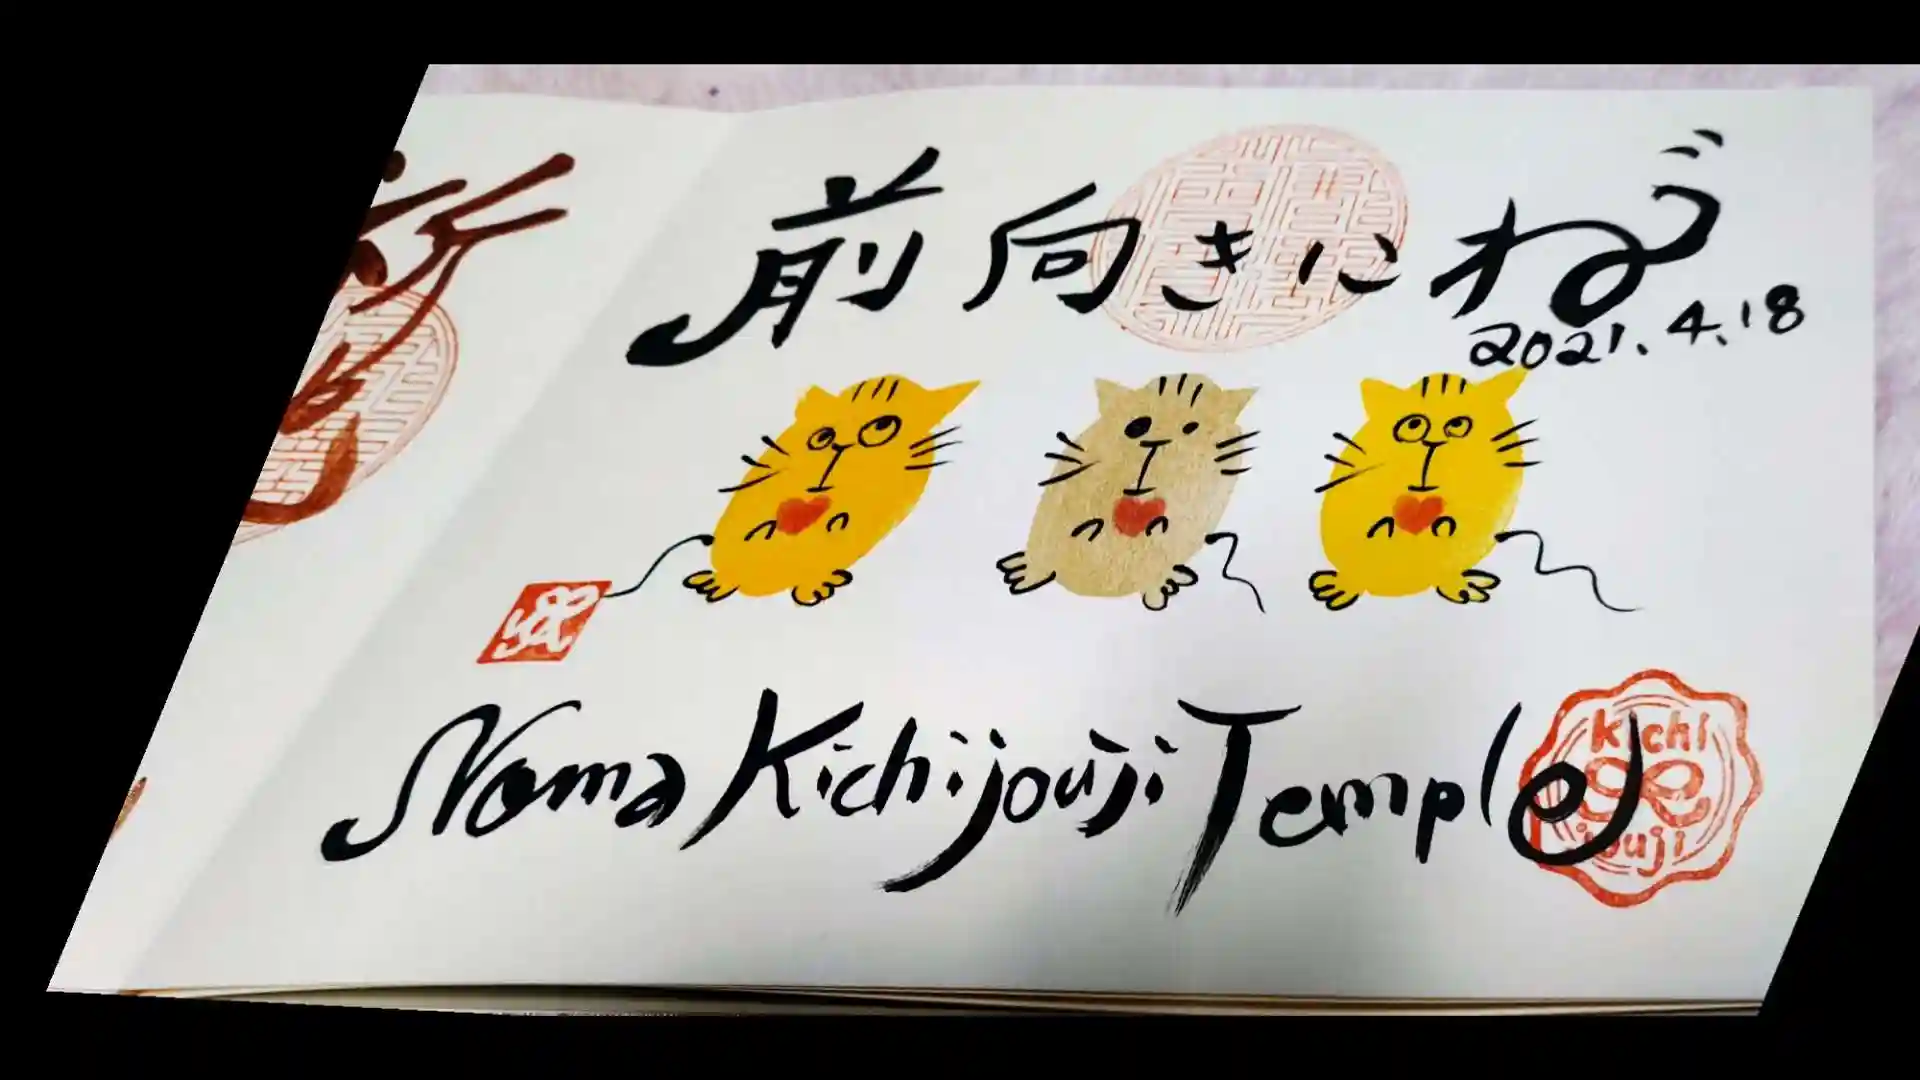 前向きにね
2021.4.18
Noma Kichijouji Temple
kichi
jouji